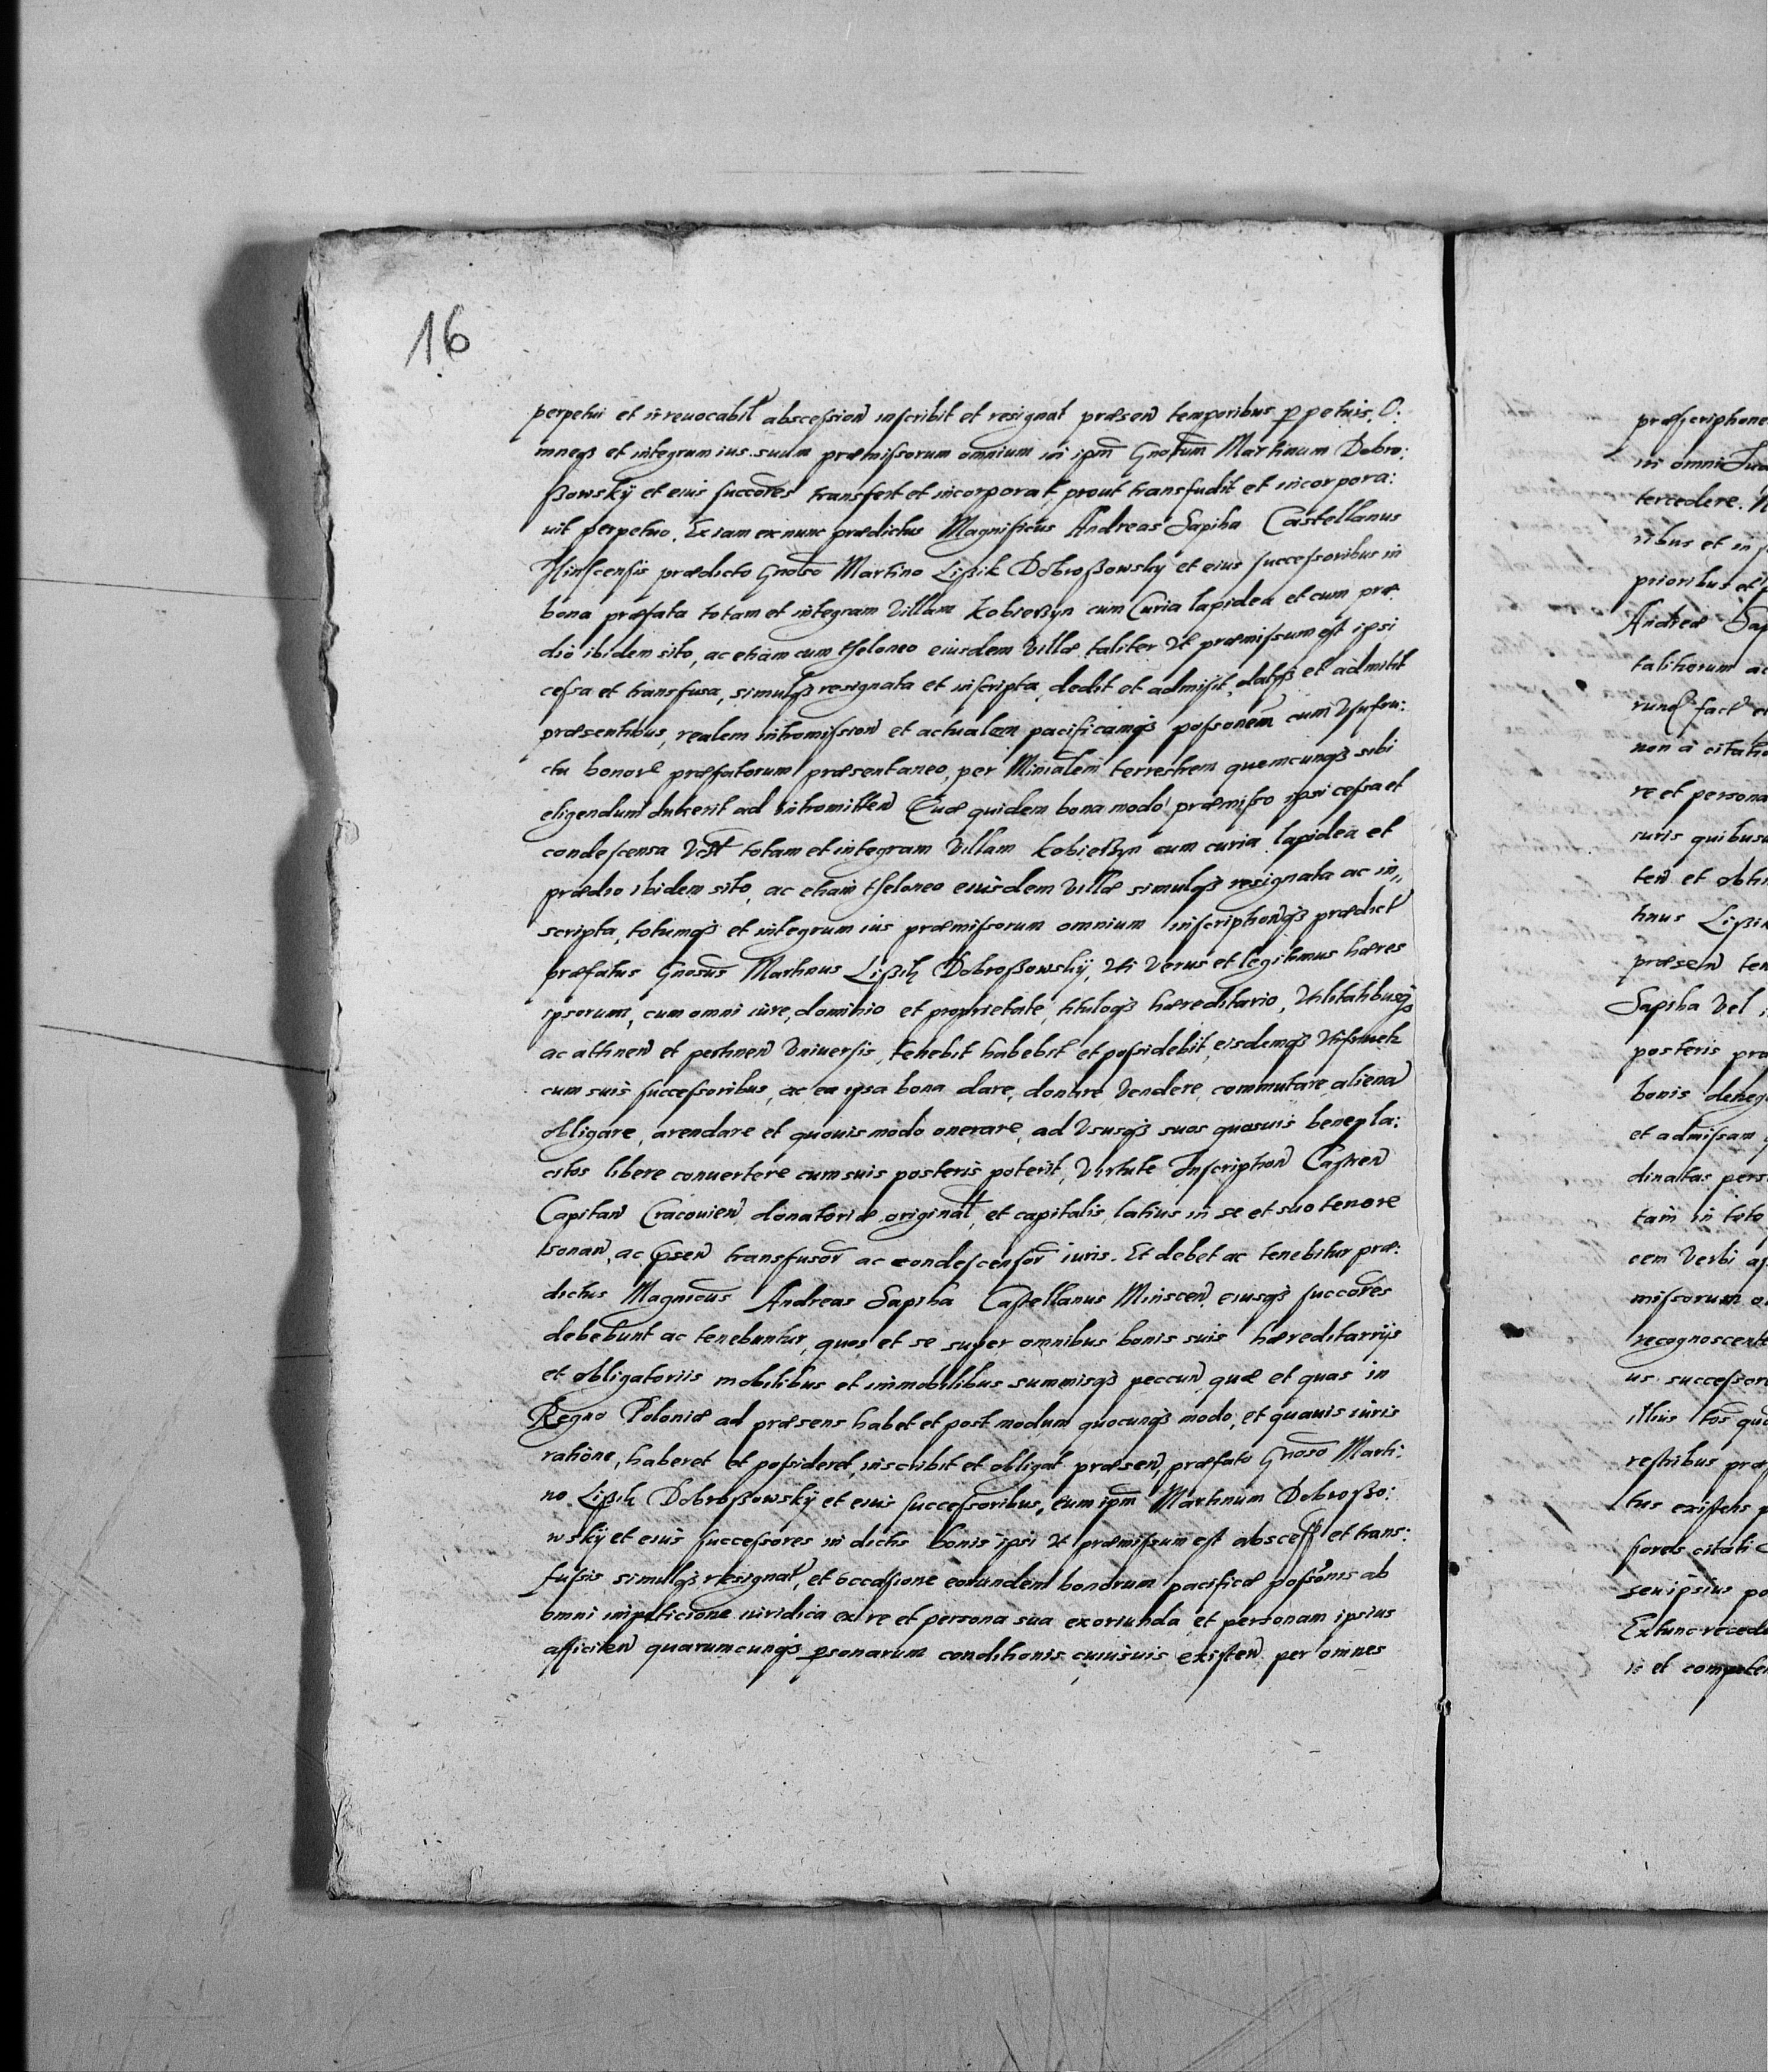 16
perpetui et irreuocabil abscession inscribit et resignat præsen temporibus ppetuis. O:
mneqs et integrum ius suum præmissorum omnium in ipm Gnosum Martinum Dobro:
ßowskÿ et eius succores transfert et incorporat, prout transfudit et incorpora:
uit perpetuo. Et iam ex nunc prædictus Magnificus Andreas Sapiha Castellanus
Minscensis prædicto Gnoso Martino Lißik Dobroßowskÿ et eius successoribus in
bona præfata totam et integram Villam Kobierzyn cum Curia lapidea et cum præ
dio ibidem sito, ac etiam cum theloneo eiusdem Villæ taliter Vt præmissum est ipsi
cessa et transfusa, simulqs resignata et inscripta, dedit et admisit, datqs et admittit
præsentibus, realem intromission et actualem pacificamqs possonem cum Vsufru:
ctu bonor præfatorum præsentaneo, per Minialem terrestrem quemcunqs sibi
eligendum duxerit ad intromitten Quæ quidem bona modo præmisso ipsi cessa et
condescensa Vcꝫt totam et integram Villam Kobierzyn cum curia lapidea et
prædio ibidem sito, ac etiam theloneo eiusdem Villæ simulqs resignata ac in„
scripta, totumqs et integrum ius præmissorum omnium inscriptionqs prædict
præfatus Gnosus Martinus Lißik Dobroßowskÿ, Vti Verus et legitimus hæres
ipsorum, cum omni iure, dominio et proprietate, tituloqs hæreditario, Vtilitatibusqs
ac attinen et pertinen Vniuersis, tenebit habebit et possidebit, eisdemqs Vtifruetur
cum suis successoribus, ac ea ipsa bona dare, donare Vendere, commutare, aliena
obligare, arendare et quouis modo onerare, ad Vsusqs suos quosuis benepla:
citos libere conuertere cum suis posteris poterit, Virtute Inscription Castren
Capitan Cracouien donatoriæ original, et capitalis, latius in se et suo tenore
sonan, ac psen transfusor ac condescensor iuris. Et debet ac tenebitur præ:
dictus Magnicus Andreas Sapiha Castellanus Minscen, eiusqs succores
debebunt ac tenebuntur, quos et se super omnibus bonis suis hæreditarijs
et obligatoriis mobilibus et immobilibus summisqs peccun quæ et quas in
Regno Poloniæ ad præsens habet et post modum quocunqs modo, et quauis iuris
ratione, haberet et possideret, inscribit et obligat præsen, præfato Gnoso Marti:
no Lißik Dobroßowskÿ et eius successoribus, eum ipm Martinum Dobroßo:
wskÿ et eius successores in dictis bonis ipsi Vt præmissum est abscess et trans:
fusis simulqs resignat, et occasione eorundem bonorum pacificæ possonis ab
omni impeticione iuridica ex re et persona sua exoriunda et personam ipsius
afficiten quarumcunqs psonarum conditionis cuiusuis existen per omnes
in omni
tercedere.
ribus et in
prioribus et
Andreæ Sap
talitiorum ac
non à citatio
re et persona
iuris quibusu
ten et obti
tinus Lißik
præsen tem
Sapiha Vel
posteris præ
bonis deneg
et admissam
dinatas pers
tam in toto
cem Verbi
missorum
recognoscente
us successor
illius
restibus præ
tus existens
sores citati
seu ipsius po
Ex tunc recedu
is et competen